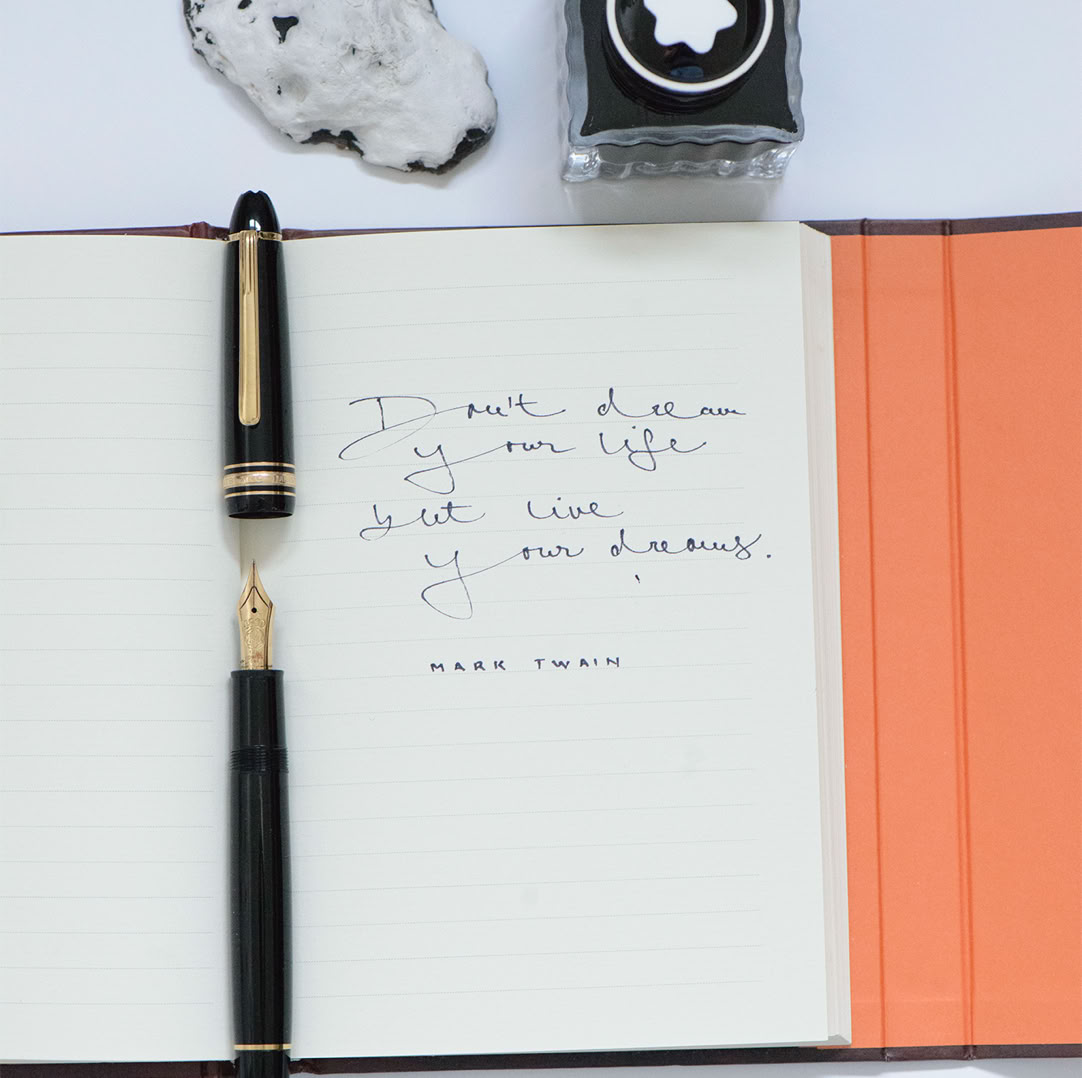 Don't dream
your life
but live
your dreams.
MARK TWAIN